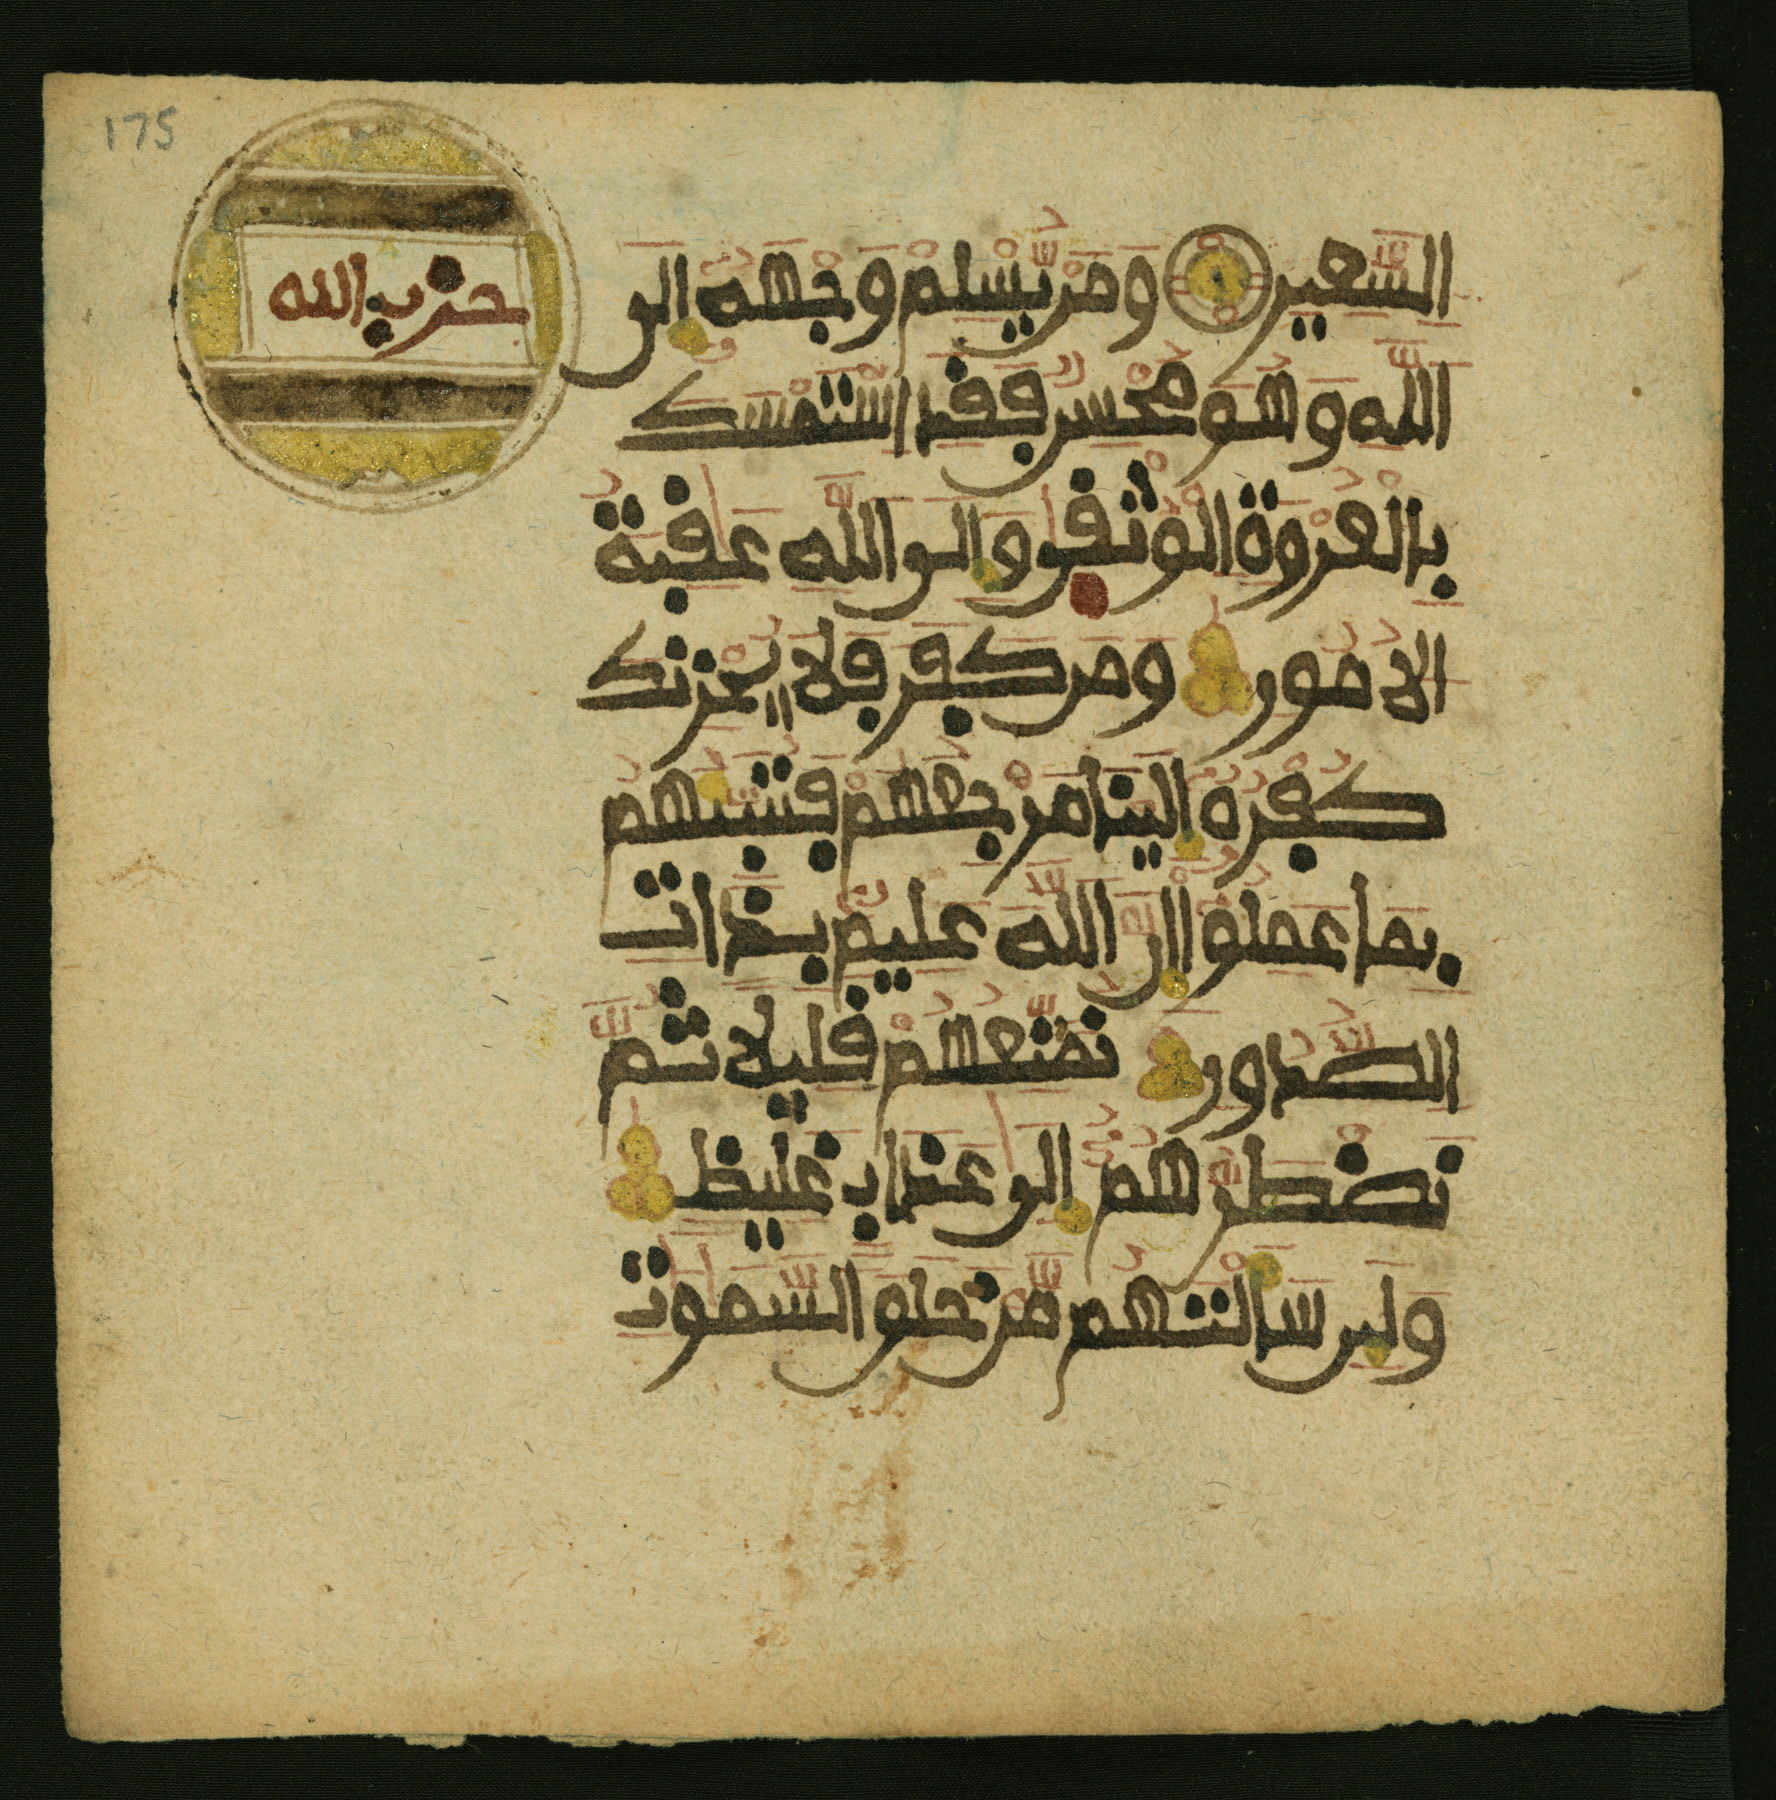 175
حزب الله
السَّعِيرِ وَمَنْ يُّسْلِمْ وَجْهَهُ إِلَى
اللَّهِ وَهُوَ مُحْسِنٌ فَقَدِ اسْتَمْسَكَ
بِالْعُرْوَةِ الْوُثْقَى وَإِلَى اللَّهِ عَٰقِبَةُ
الْأُمُورِ وَمَن كَفَرَ فَلَا يُحْزِنكَ
كُفْرُهُ إِلَيْنَا مَرْجِعُهُمْ فَنُنَبِّئُهُم
بِمَا عَمِلُوا إِنَّ اللَّهَ عَلِيمٌ بِذَاتِ
الصُّدُورِ نُمَتِّعُهُمْ قَلِيلًا ثُمَّ
نَضْطَرُّهُمْ إِلَى عَذَابٍ غَلِيظٍ
وَلَئِن سَأَلْتَهُم مَّنْ خَلَقَ السَّمَٰوَٰتِ